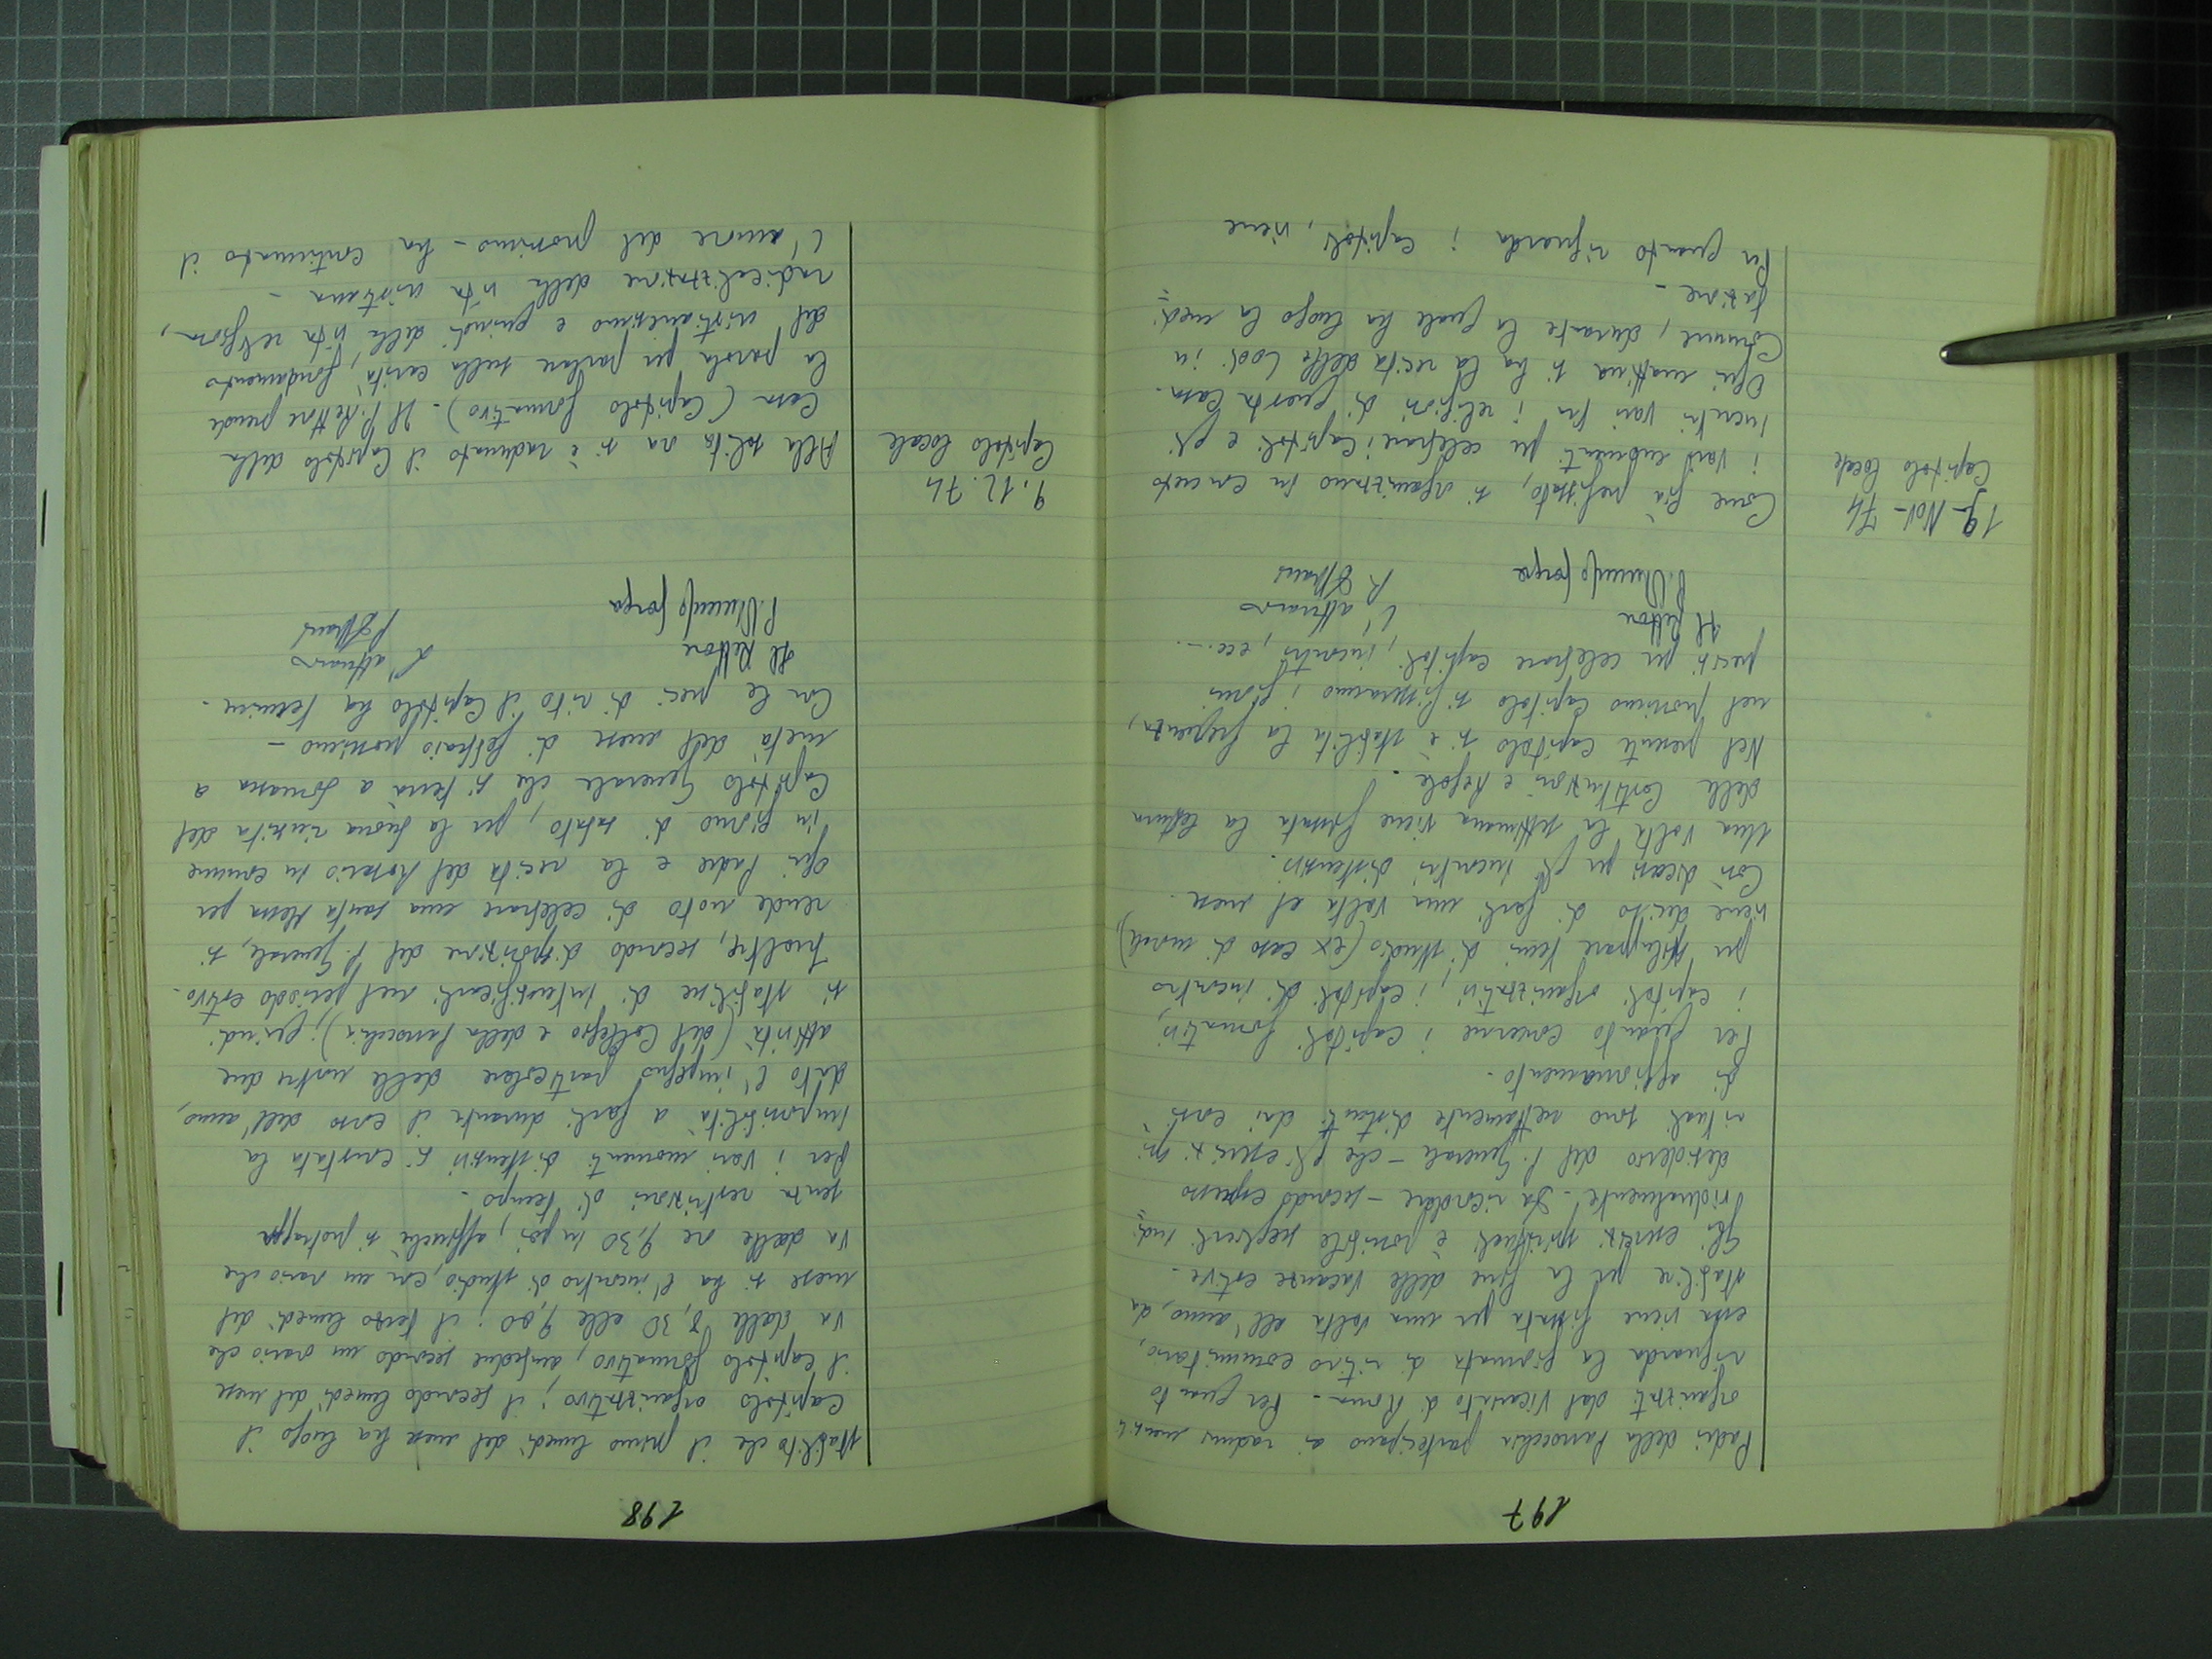 197
Padri della Parrocchia partecipano ai raduni mensili
organizzati dal Vicariato di Roma - Per quanto
riguarda la giornata di ritiro comunitario,
essa viene fissata per una volta all'anno, da
stabilire per la fine delle vacanze estive -
Gli esercizi spirituali è possibile sceglierli indi=
vidualmente - Da ricordare - secondo espresso
desiderio del P. Generale - che gli esercizi spi
rituali sono nettamente distinti dai corsi
di aggiornamento.
Per quanto concerne i capitoli formativi,
i capitoli organizzativi, i capitoli di incontro
per sviluppare temi di studio (ex caso di morale),
viene deciso di farli una volta al mese.
Così dicasi per gli incontri distensivi.
Una volta la settimana viene fissata la lettura
delle Costituzioni e Regole -
Nel presente capitolo si è stabilita la frequenza,
nel prossimo capitolo si fisseranno i giorni
precisi per celebrare capitoli, incontri, ecc. -
Il Rettore
L'attuario
19-Nov-74
Capitolo locale
Come già prefissato, si organizzano in concreto
i vari momenti per celebrare i Capitoli e gli
incontri vari fra i religiosi di questa Casa.
Ogni mattina si ha la recita delle Lodi in
Comune, durante la quale ha luogo la medi=
tazione -
Per quanto riguarda i capitoli, viene
198
stabilito che il primo lunedì del mese ha luogo il
capitolo organizzativo; il secondo lunedì del mese
il capitolo formativo, ambedue secondo un orario che
va dalle 8,30 alle 9,00; il terzo lunedì del
mese si ha l'incontro di studio, con un orario che
va dalle ore 9,30 in poi, affinché si protragga
senza restrizioni di tempo -
Per i vari momenti distensivi si constata la
impossibilità a farli durante il corso dell'anno,
dato l'impegno particolare delle nostre due
attività (del Collegio e della Parrocchia); quindi
si stabilisce di intensificarli nel periodo estivo.
Inoltre, secondo disposizione del P. Generale, si
rende noto di celebrare una santa Messa per
ogni Padre e la recita del Rosario in comune
in giorno di sabato, per la buona riuscita del
Capitolo Generale che si terrà a Somasca a
metà del mese di febbraio prossimo -
Con le preci di rito il Capitolo ha termine.
Il Rettore
L'attuario
9.12.74
Capitolo locale
Alla solita ora si è radunato il Capitolo della
Casa (Capitolo formativo) - Il P. Rettore prende
la parola per parlare sulla carità, fondamento
del cristianesimo e quindi della vita religiosa,
radicalizzazione della vita cristiana -
L'amore del prossimo - ha continuato il